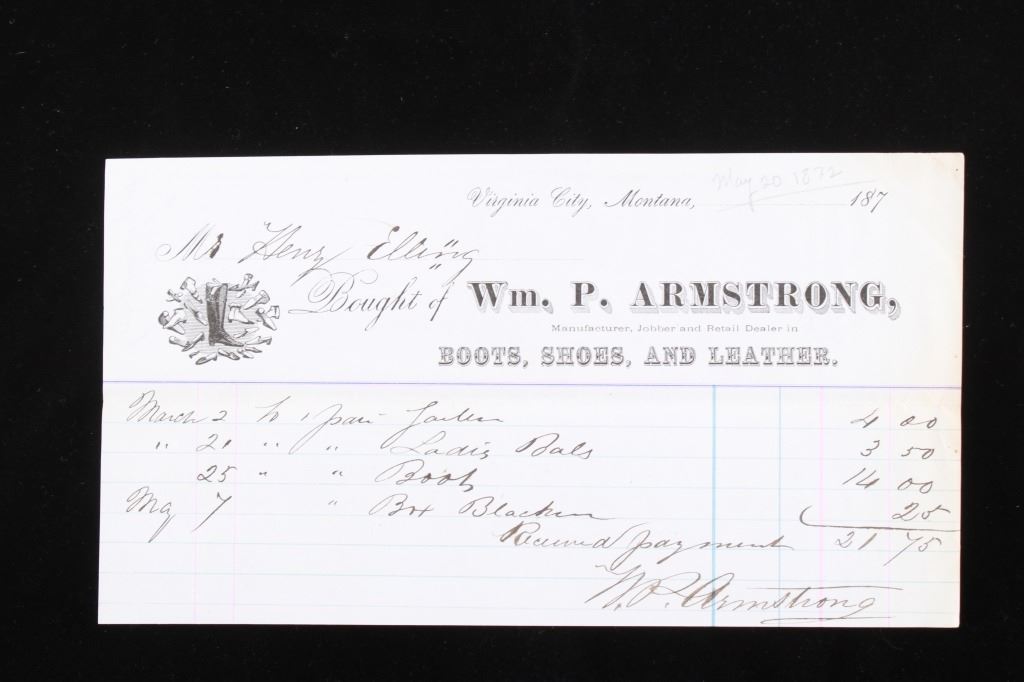 Virginia City, Montana, May 20 1872 187
Mr Henry Elling
Bought of Wm. P. ARMSTRONG,
Manufacturer, Jobber and Retail Dealer in
BOOTS, SHOES, AND LEATHER.
March 2 To 1 pair 4 00
" 21 " " Ladis Bals 3 50
25 " " Boots 14 00
May 7 " Box Blacken 25
Received payment 21 75
W. P. Armstrong